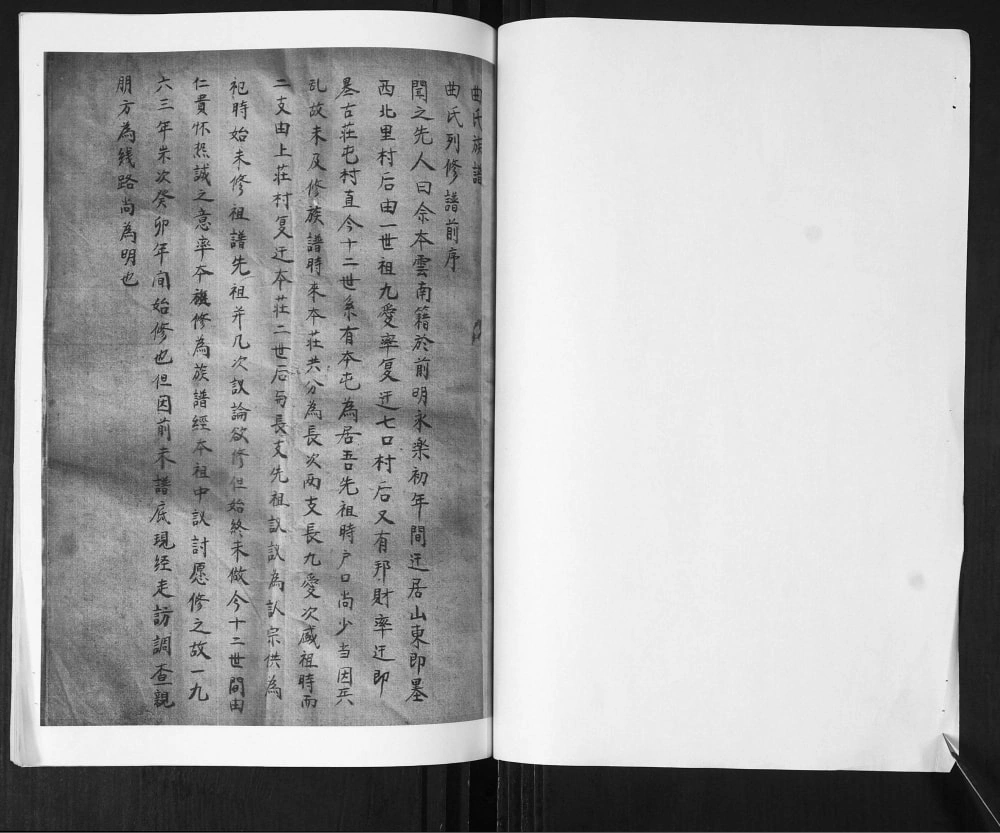 曲氏族譜
曲氏列修譜前序
聞之先人曰余本雲南籍於前明永樂初年間迁居山東即墨
西北里村后由一世祖九愛率复迁七口村后又有邦財率迁即
墨古莊屯村直今十二世系有本屯為居吾先祖時户口尚少当因兵
乱故未及修族譜時來本莊共分為長次两支長九愛次威祖時而
二支由上莊村复迁本莊二世后与長支先祖議議為認宗供為
祀時始未修祖譜先祖并几次議論欲修但始終未做今十二世間由
仁貴怀热誠之意率本族修為族譜經本祖中議討愿修之故一九
六三年岁次癸卯年间始修也但因前未譜底現经走訪調查親
朋方為线路尚為明也